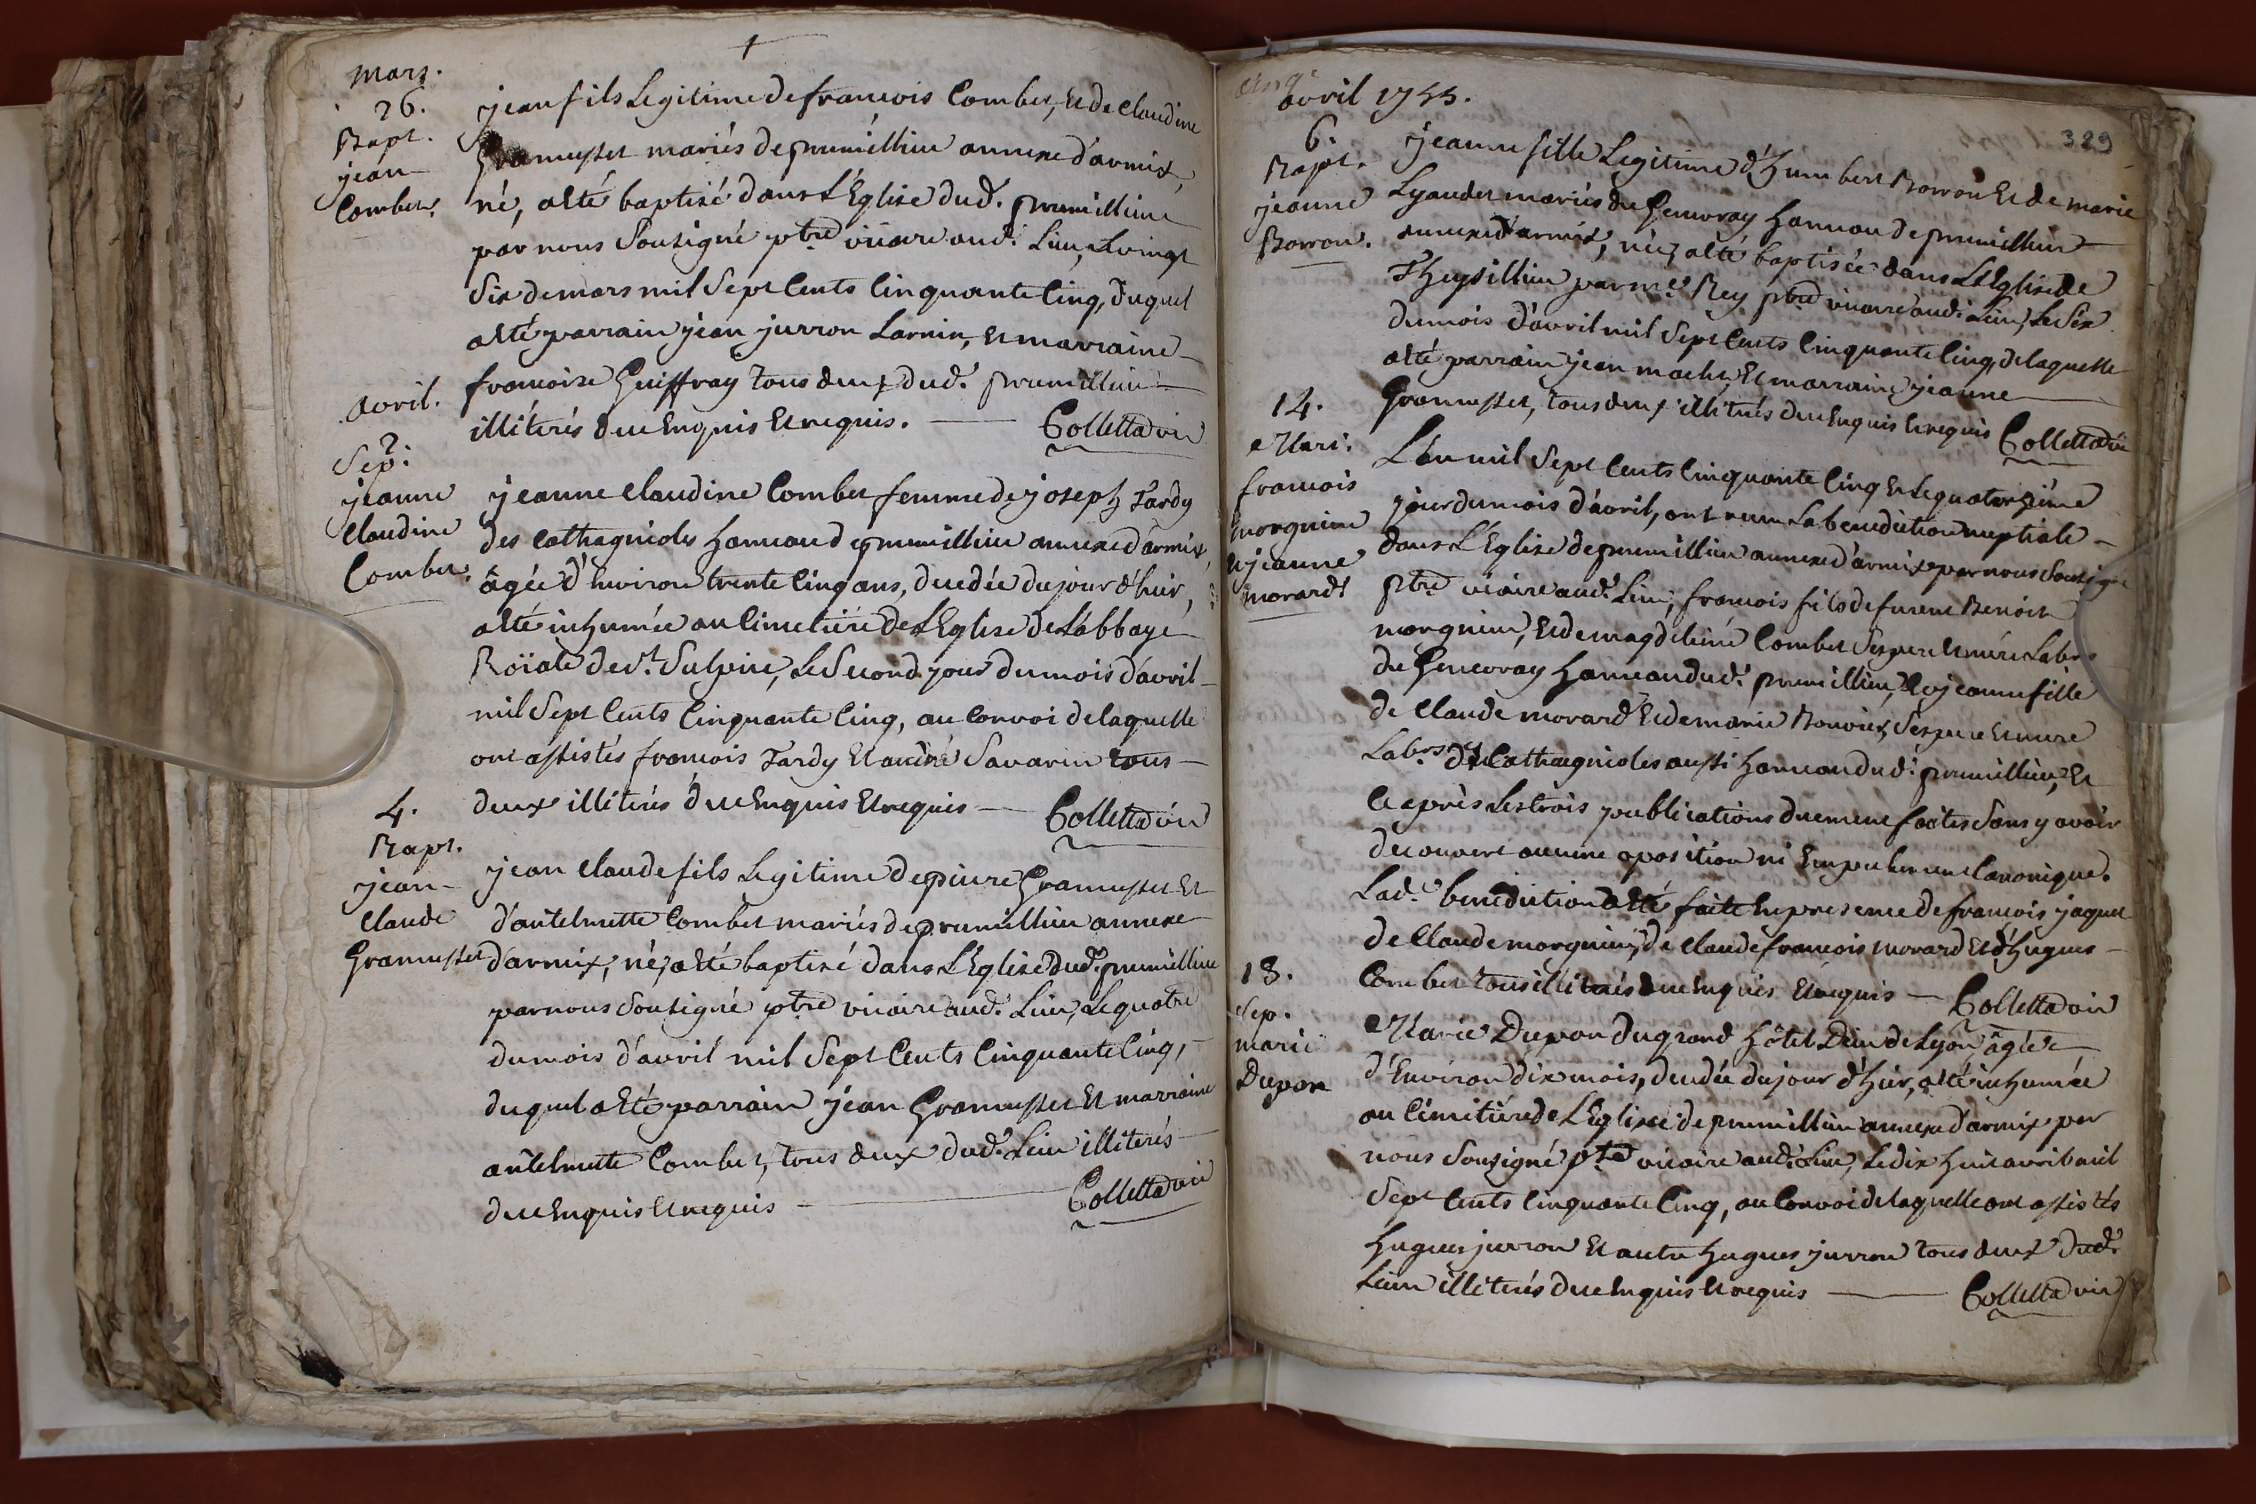 mars.
26.
Bapt.
jean
Combet.
jean fils Legitime de francois Combet, et de Claudine
Gramusset mariés de prumillieu annexe d'armix,
né, a eté baptisé dans L'Eglise dud. prumillieu
par nous Souzigné ptre vicaire aud. Lieu, le vingt
Six de mars mil Sept Cents Cinquante Cinq, duquel
a eté parrain jean jurron Larnin, et marraine
francoise Guiffray tous deux dud. prumillieu
illiterés de ce Enquis et requis. Colletta vic
avril.
2.
Sep.
jeanne
Claudine
Combet.
jeanne Claudine Combet femme de joseph Tardy
des Cathagnioles hameau de prumillieu annexe d'armix,
âgée d'Environ trente Cinq ans, decedée du jour d'hier,
a eté inhumée au Cimetiére de L'Eglise de L'abbaye
Roïale de St. Sulpice, Le Second jour du mois d'avril
mil Sept Cents Cinquante Cinq, au Convoi de laquelle
ont assistés francois Tardy et andré Savarin tous
deux illiterés de ce Enquis et requis Colletta vic
4.
Bapt.
jean
Claude
Gramusset
jean Claude fils Legitime de pierre Gramusset et
d'antelmette Combet mariés de prumillieu annexe
d'armix, né, a eté baptisé dans L'Eglise dud. prumillieu
par nous Souzigné ptre vicaire aud. Lieu, Le quatre
du mois d'avril mil Sept Cents Cinquante Cinq,
duquel a eté parrain jean Gramusset et marraine
antelmette Combet, tous deux dud. Lieu illiterés
de ce Enquis et requis Colletta vic
avril 1755.
329
6.
Bapt.
jeanne
Borron.
jeanne fille Legitime d'humbert Borron et de marie
Lyaudet mariés du Genevray hameau de prumillieu
annexe d'armix, née, a eté baptisée dans L'Eglise de
Thezillieu par mr. Rey ptre vicaire aud. Lieu, Le Six
du mois d'avril mil Sept Cents Cinquante Cinq, de laquelle
a eté parrain jean machet, et marraine jeanne
Gramusset, tous deux illiterés de ce Enquis et requis Colletta vic
14.
Mari.
francois
morgnieu
et jeanne
morard
L'an mil Sept Cents Cinquante Cinq et Le quatorziéme
jour du mois d'avril, ont recu La benediction nuptiale
dans L'Eglise de prumillieu annexe d'armix par nous Souzigné
ptre vicaire aud. Lieu, francois fils de furent Benoit
morgnieu, et de magdeleine Combet Ses pere et mére Labrs
du Genevray hameau dud. prumillieu, et jeanne fille
de Claude morard et de marie Bouvier, Ses pere et mere
Labrs des Cathagnioles aussi hameau dud. prumillieu, et
Ce aprés Les trois publications duement faites Sans y avoir
decouvert aucune oposition ni Empechement Canonique.
Lad. benediction a eté faite En presence de francois jaquet
de Claude morgnieu, de Claude francois morard et d'hugues
Combet tous illiterés de ce Enquis et requis Colletta vic
18.
Sep.
marie
Dupon
Marie Dupon du grand hôtel Dieu de Lyon, âgée
d'Environ dix mois, decedée du jour d'hier, a eté inhumée
au Cimitiére de L'Eglise de prumillieu annexe d'armix par
nous Souzigné ptre vicaire aud. Lieu, Le dix huit avril mil
Sept Cents Cinquante Cinq, au Convoi de laquelle ont assistés
hugues jurron et autre hugues jurron tous deux dud.
Lieu illiterés de ce Enquis et requis Colletta vic